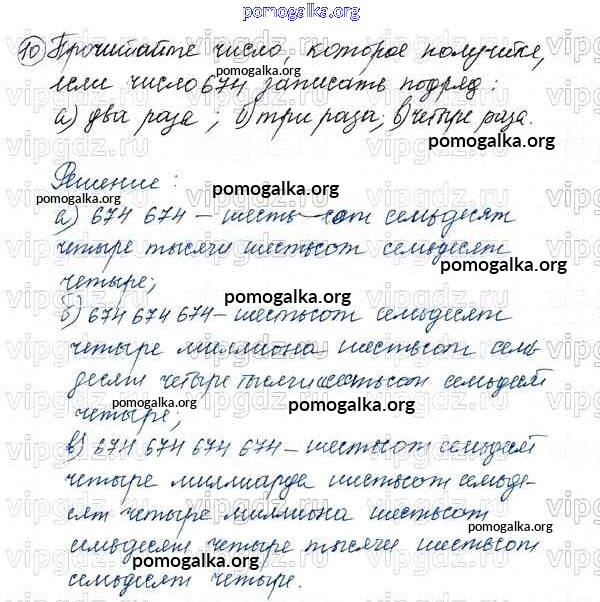 pomogalka.org
10 Прочитайте число, которое получите,
если число 674 записать подряд:
pomogalka.org
а) два раза; б) три раза; в) четыре раза.
pomogalka.org
Решение:
pomogalka.org
а) 674 674 – шестьсот семьдесят
четыре тысячи шестьсот семьдесят
pomogalka.org
четыре;
pomogalka.org
б) 674 674 674 – шестьсот семьдесят
четыре миллиона шестьсот семь
pomogalka.org
десят четыре тысячи шестьсот семьдесят
четыре;
pomogalka.org
в) 674 674 674 674 – шестьсот семьдесят
четыре миллиарда шестьсот семьде-
сят четыре миллиона шестьсот
pomogalka.org
семьдесят четыре тысячи шестьсот
семьдесят четыре.
pomogalka.org